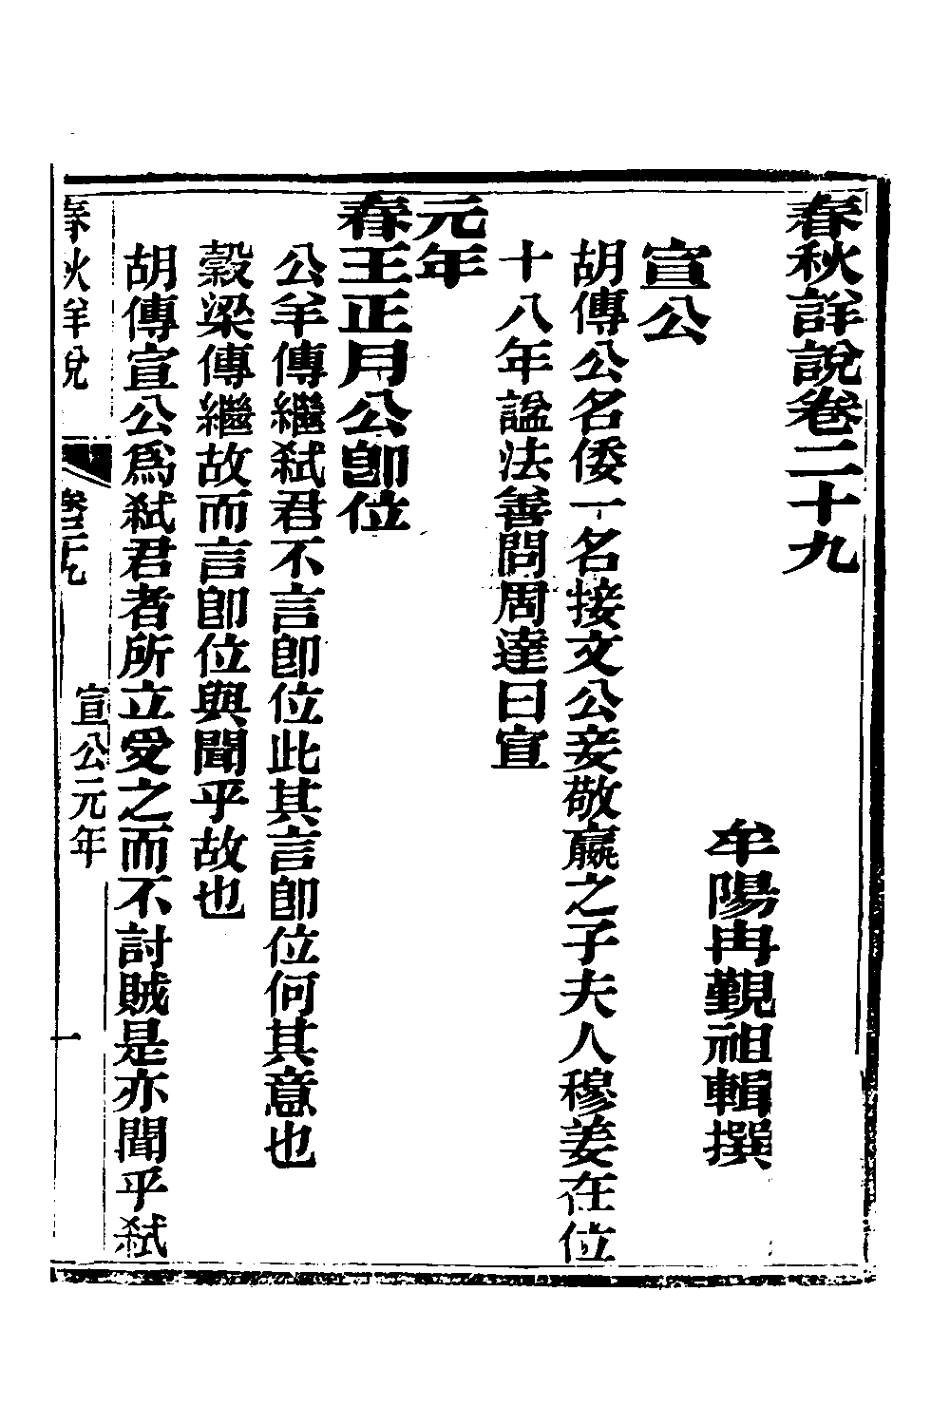 春秋詳說卷二十九
牟陽冉覲祖輯撰
宣公
胡傳公名倭一名接文公妾敬嬴之子夫人穆姜在位
十八年諡法善問周達曰宣
元年
春王正月公卽位
公羊傳繼弒君不言卽位此其言卽位何其意也
穀梁傳繼故而言卽位與聞乎故也
胡傳宣公爲弒君者所立受之而不討賊是亦聞乎弒
春秋詳說
卷二十九
宣公元年
一